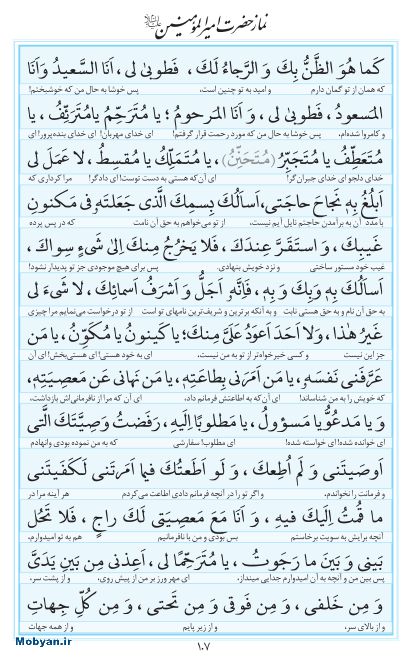 نماز حضرت امیرالمؤمنین علیه‌السلام
كَما هُوَ الظَّنُّ بِكَ وَ الرَّجاءُ لَكَ، فَطوبىٰ لی، اَنَا السَّعیدُ وَاَنَا
که همان از تو گمان دارم و امید به تو چنین است، پس خوشا به حال من که خوشبختم!
المَسعودُ، فَطوبىٰ لی، وَ اَنَا المَرحومُ؛ یا مُتَرَحِّمُ یامُتَرَئِّفُ، یا
و کامروا شده‌ام، پس خوشا به حال من که مورد رحمت قرار گرفتم! ای خدای مهربان! ای خدای بنده‌پرور! ای
مُتَعَطِّفُ یا مُتَجَبِّرُ (مُتَحَنِّنُ)، یا مُتَمَلِّكُ یا مُقسِطُ، لا عَمَلَ لی
خدای دلجو ای خدای جبران‌گر! ای آن‌که هستی به دست توست! ای دادگر! مرا کرداری که
اَبلُغُ بِهٖ نَجاحَ حاجَتی، اَساَلُكَ بِسمِكَ الَّذی جَعَلتَهٗ فی مَكنونِ
با مدد آن به برآمدن حاجتم نایل آیم نیست، از تو می‌خواهم به حق آن نامت که در پس پرده
غَیبِكَ، وَ استَقَرَّ عِندَكَ، فَلا یَخرُجُ مِنكَ اِلىٰ شَیءٍ سِواكَ،
غیب خود مستور ساختی و نزد خویش بنهادی، پس برای هیچ موجودی جز تو پدیدار نشود!
اَساَلُكَ بِهٖ وَبِكَ وَ بِهٖ، فَاِنَّهٗ اَجَلُّ وَ اَشرَفُ اَسمائِكَ، لا شَیءَ لی
به حق آن نام و به حق هستی نابت و به آنکه برترین و شریف‌ترین نامهای تو است از تو درخواست می‌نمایم مرا چیزی
غَیرُ هٰذا، وَلا اَحَدَ اَعوَدُ عَلَیَّ مِنكَ؛ یا كَینونُ یا مُكَوِّنُ، یا مَن
جز این نیست و کسی خیرخواه‌تر از تو به من نیست، ای به خود هستی! ای هستی‌بخش! ای آن
عَرَّفَنی نَفسَهٗ، یا مَن اَمَرَنی بِطاعَتِهٖ، یا مَن نَهانی عَن مَعصِیَتِهٖ،
که خویش را به من شناساند! ای آن که به اطاعتش فرمانم داد، ای آن که مرا از نافرمانی‌اش بازداشت،
وَ یا مَدعُوُّ یا مَسؤولُ، یا مَطلوبًا اِلَیهِ، رَفَضتُ وَصِیَّتَكَ الَّتی
ای خوانده شده! ای خواسته شده! ای مطلوب! سفارشی که به من نموده بودی وانهادم
اَوصَیتَنی وَ لَم اُطِعكَ، وَ لَو اَطَعتُكَ فیما اَمَرتَنی لَكَفَیتَنی
و فرمانت را نخواندم، و اگر تو را در آنچه فرمانم دادی اطاعت می‌کردم هر آینه مرا در
ما قُمتُ اِلَیكَ فیهِ، وَ اَنَا مَعَ مَعصِیَتی لَكَ راجٍ، فَلا تَحُل
آنچه برایش به سویت برخاستم پس بودی و من با نافرمانیم هم به تو امیدوارم،
بَینی وَ بَینَ ما رَجَوتُ، یا مُتَرَحِّمًا لی، اَعِذنی مِن بَینِ یَدَیَّ
پس بین من و آنچه به آن امیدوارم جدایی مینداز، ای مهر ورز بر من از پیش روی، و از پشت سر،
وَ مِن خَلفی، وَ مِن فَوقی وَ مِن تَحتی، وَ مِن كُلِّ جِهاتِ
و از بالای سر، و از زیر پایم و از همه جهات
۱۰۷
Mobyan.ir